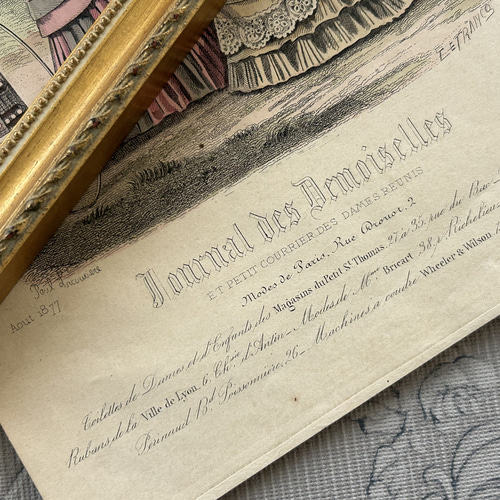 E. FRANCO
Août 1877
Journal des Demoiselles
ET PETIT COURRIER DES DAMES RÉUNIS
Modes de Paris, Rue Drouot, 2
Toilettes de Dames et d'Enfants des Magasins du Petit St Thomas, 27 à 35, rue du Bac
Rubans de la Ville de Lyon, 6, Chsée d'Antin _ Modes de Mme Bricart, 38, r. Richelieu
Périnaud Bd Poissonnière, 26_ Machines à coudre Wheeler & Wilson, 6